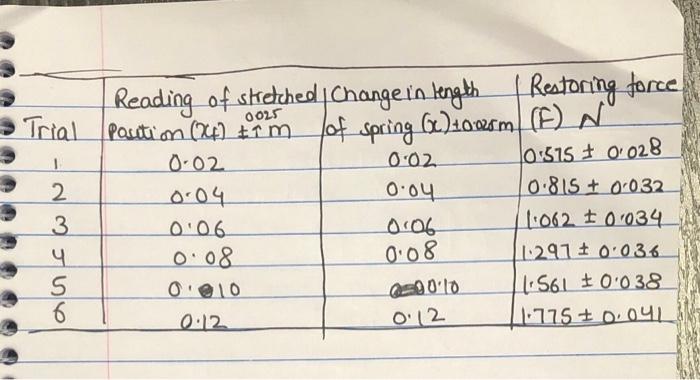 Reading of stretched Change in length Restoring force
Trial Position (xf) ± 0.0025 m of spring (x) ± 0.0025m (F) N
1 0.02 0.02 0.575 ± 0.028
2 0.04 0.04 0.815 ± 0.032
3 0.06 0.06 1.062 ± 0.034
4 0.08 0.08 1.297 ± 0.036
5 0.10 0.10 1.561 ± 0.038
6 0.12 0.12 1.775 ± 0.041